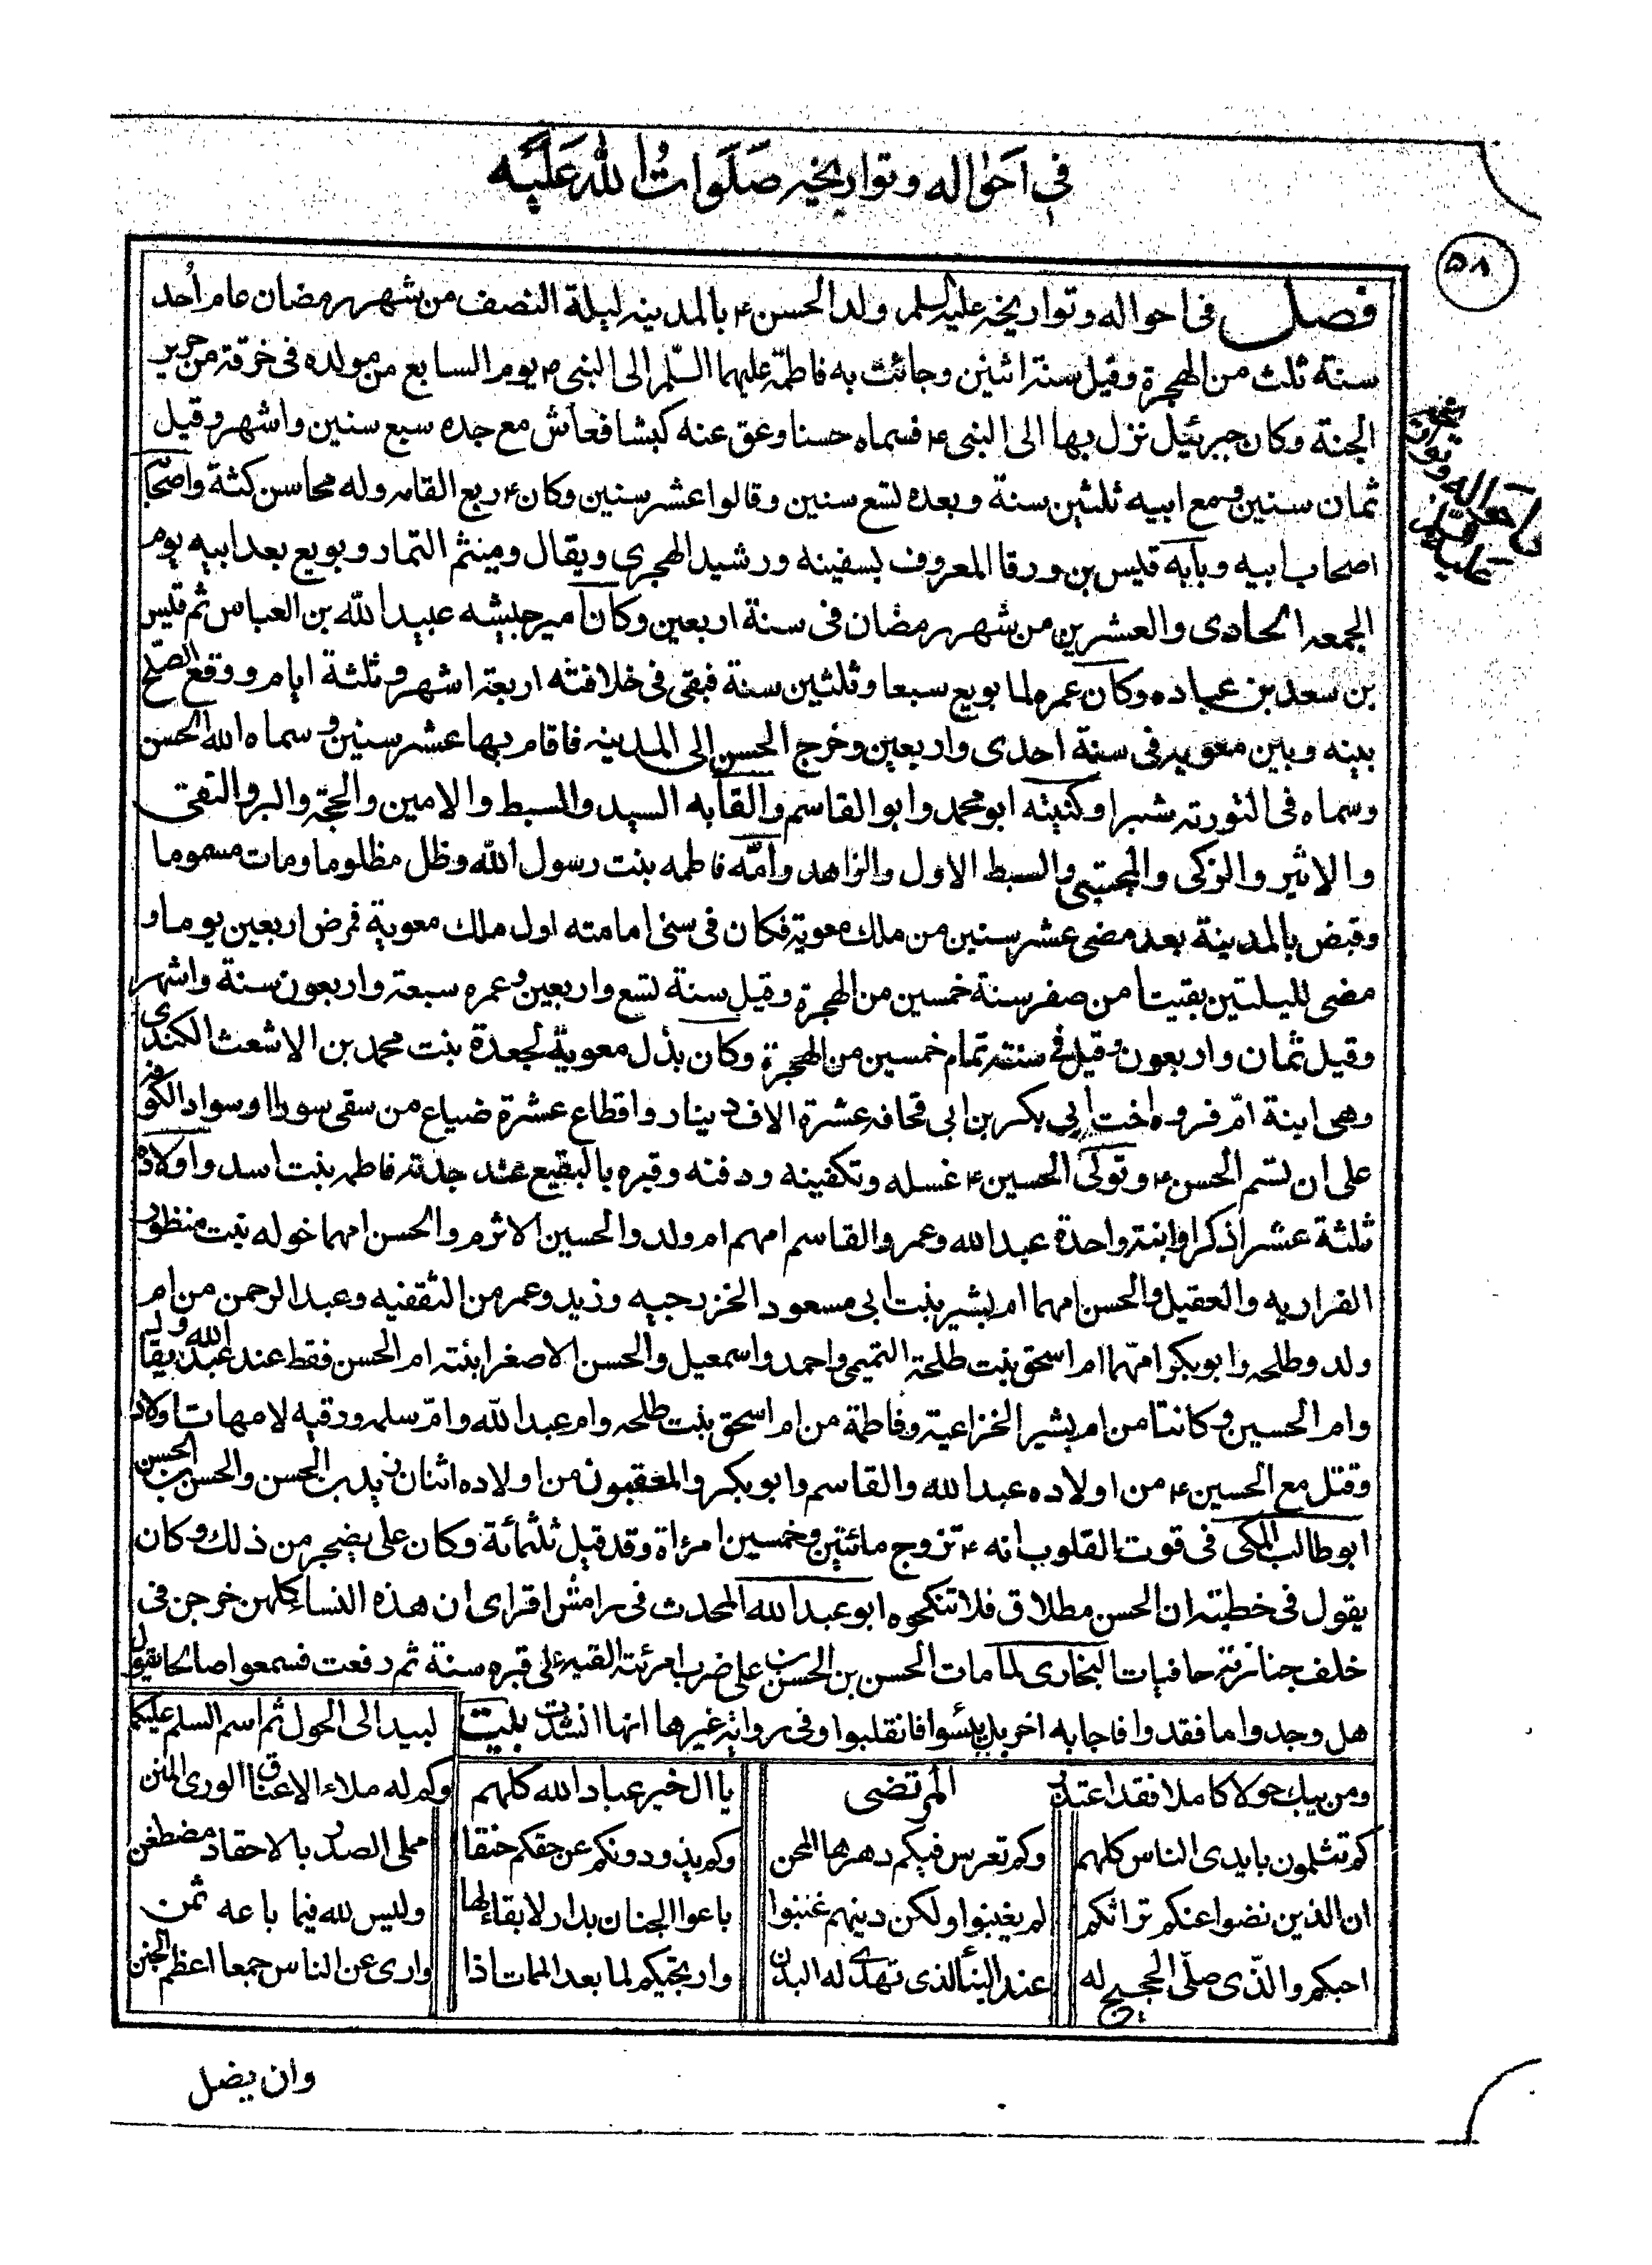 في احواله وتواريخه صلوات الله عليه
٥٨
فصل في احواله وتواريخه عليه السلم ولد الحسن ع بالمدينه ليلة النصف من شهر رمضان عام أحد
سنة ثلث من الهجرة وقيل سنة اثنين وجائت به فاطمة عليهما السّلم الى النبى ص يوم السابع من مولده فى خرقة من حرير
الجنة وكان جبرئيل نزل بها الى النبى ص فسماه حسنا وعق عنه كبشا فعاش مع جده سبع سنين واشهر وقيل
ثمان سنين ومع ابيه ثلثين سنة وبعده تسع سنين وقالوا عشر سنين وكان ع ربع القامه وله محاسن كثة واصحابه
اصحاب ابيه وبابه قيس بن ورقا المعروف بسفينه ورشيد الهجرى ويقال وميثم التمار وبويع بعد ابيه يوم
الجمعه الحادى والعشرين من شهر رمضان فى سنة اربعين وكان امير جيشه عبيد الله بن العباس ثم قيس
بن سعد بن عباده وكان عمره لما بويع سبعا وثلثين سنة فبقى فى خلافته اربعة اشهر وثلثة ايام ووقع الصلح
بينه وبين معويه فى سنة احدى واربعين وخرج الحسن الى المدينه فاقام بها عشر سنين وسماه الله الحسن
وسماه فى التورته شبرا وكنيته ابو محمد وابو القاسم والقابه السيد والسبط والامين والحجة والبر والتقى
والاثير والزكى والمجتبى والسبط الاول والزاهد وامّه فاطمه بنت رسول الله وظل مظلوما ومات مسموما
وقبض بالمدينة بعد مضى عشر سنين من ملك معوية فكان فى سنى امامته اول ملك معوية فمرض اربعين يوما و
مضى لليلتين بقيتا من صفر سنة خمسين من الهجرة وقيل سنة تسع واربعين وعمره سبعة واربعون سنة واشهر
وقيل ثمان واربعون وقيل فى سنة تمام خمسين من الهجرة وكان بذل معوية لجعدة بنت محمد بن الاشعث الكندى
وهى ابنة امّ فروه اخت ابى بكر بن ابى قحافه عشرة الاف دينار واقطاع عشرة ضياع من سقى سورا وسواد الكوفه
على ان تسم الحسن ع وتولى الحسين ع غسله وتكفينه ودفنه وقبره بالبقيع عند جدته فاطمه بنت اسد واولاده
ثلثة عشر ذكرا وابنة واحدة عبد الله وعمر والقاسم امهم ام ولد والحسين الاثرم والحسن امهما خوله بنت منظور
الفراريه والعقيل والحسن امهما ام بشير بنت ابى مسعود الخزرجيه وزيد وعمر من الثقفيه وعبد الرحمن من ام
ولد وطلحه وابو بكر امّهما ام اسحق بنت طلحة التميمى واحمد واسمعيل والحسن الاصغر ابنته ام الحسن فقط عند عبد الله ويقال
وام الحسين وكانتا من ام بشير الخزاعية وفاطمة من ام اسحق بنت طلحه وام عبد الله وامّ سلمه ورقيه لامهات اولاد
وقتل مع الحسين ع من اولاده عبد الله والقاسم وابو بكر والمعقبون من اولاده اثنان زيد بن الحسن والحسن بن الحسن
ابو طالب المكى فى قوت القلوب انه ع تزوج مائتين وخمسين امراة وقد قيل ثلثمائة وكان على يضجر من ذلك وكان
يقول فى خطبته ان الحسن مطلاق فلا تنكحوه ابو عبد الله المحدث فى رامش افزاى ان هذه النساء كلهن خرجن فى
خلف جنازته حافيات البخارى لما مات الحسن بن الحسن بن على ضرب امرئته القبه على قبره سنة ثم رفعت فسمعوا صائحا يقول
هل وجدوا ما فقدوا فاجابه اخر بل يئسوا فانقلبوا وفى رواية غيرها انها انشدت بيت لبيد الى الحول ثم اسم السلم عليكما
ومن يبك حولا كاملا فقد اعتذر المرتضى يا ال خير عباد الله كلهم وكم له ملاء الاعناق الورى المنن
كم تثلمون بايدى الناس كلهم وكم تعرس فيكم دهرها المحن وكم يذودونكم عن حقكم حنقا مملى الصدر بالاحقاد مضطغن
ان الذين نضوا عنكم تراثكم لم يغبنوا ولكن دينهم غبنوا باعوا الجنان بدار لا بقاء لها وليس لله فيما باعه ثمن
احبكم والذّى صلّى الحجيج له عند البنا الذى تهدى له البدن وارتجيكم لما بعد الممات اذا وارى عن الناس جمعا اعظم الجنن
وان يضل